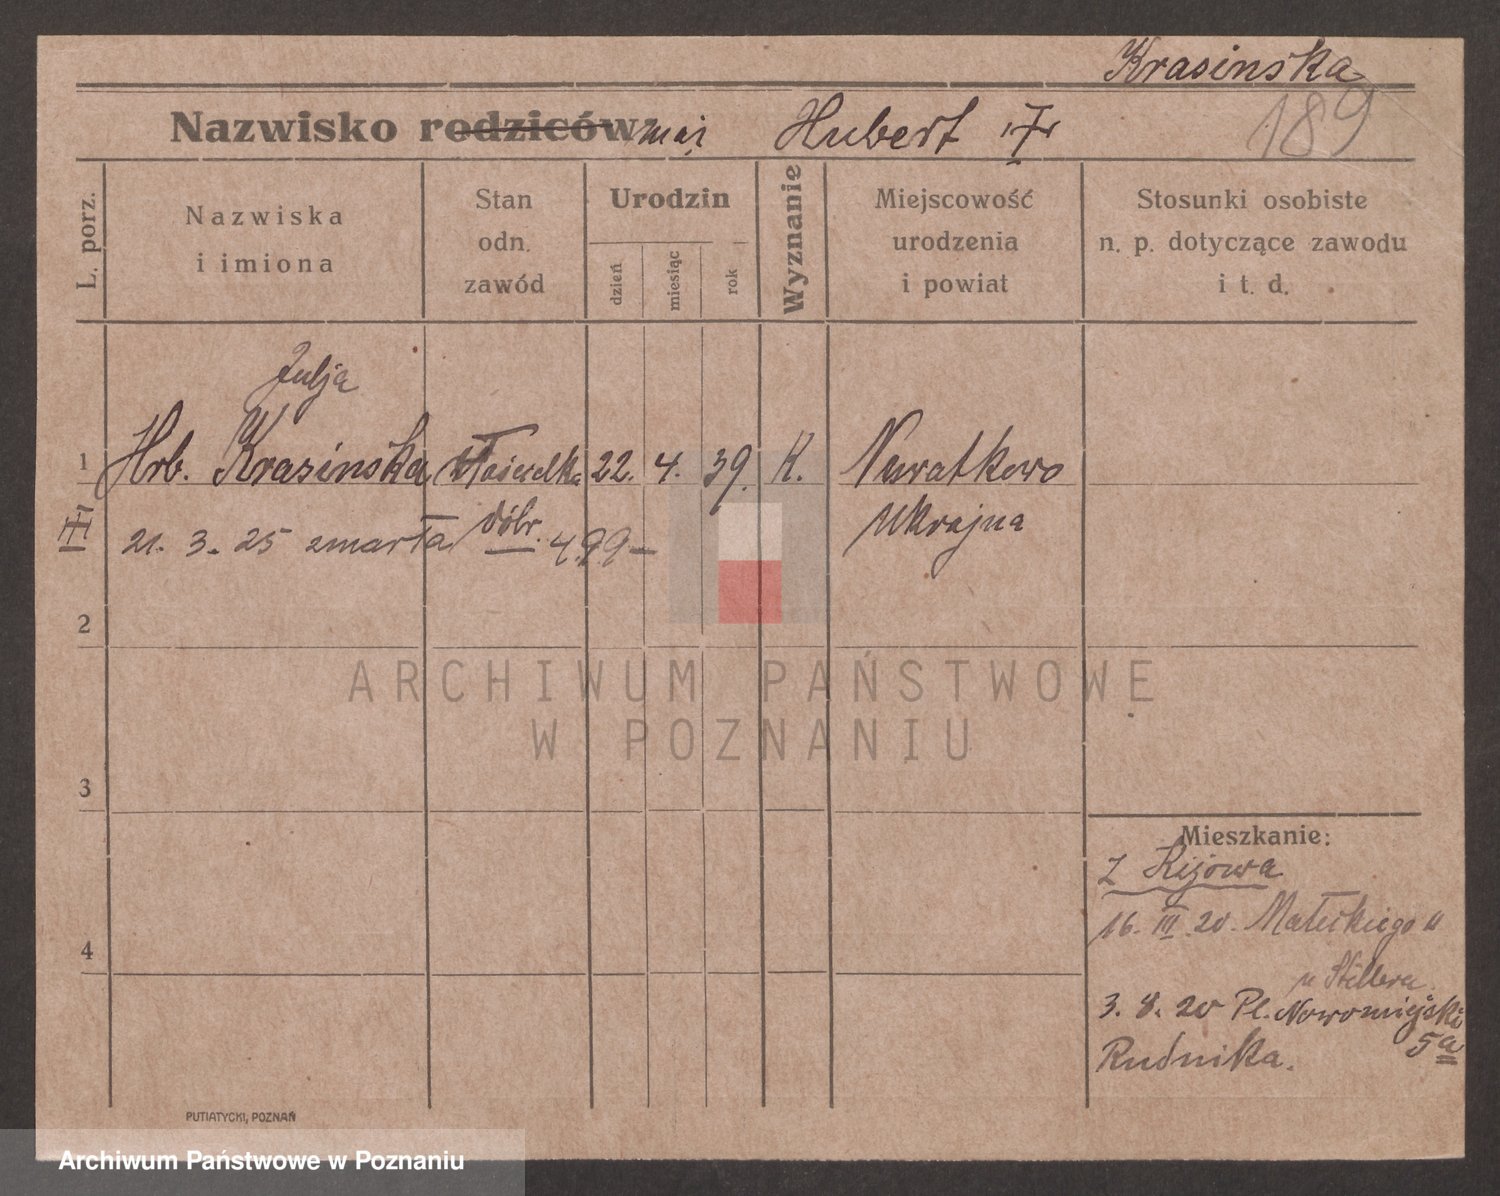 Krasinska
189
Nazwisko rodziców mąż Hubert
L. porz.
Nazwiska
i imiona
Stan
odn.
zawód
Urodzin
dzień
miesiąc
rok
Wyznanie
Miejscowość
urodzenia
i powiat
Stosunki osobiste
n. p. dotyczące zawodu
i t. d.
Julja
1 Hrb. Krasinska 22. 4. 39. K.
III
21. 3. 25 zmarła dóbr. 499 —
Ukrajna
2
ARCHIWUM PAŃSTWOWE
W POZNANIU
3
Mieszkanie:
Z Kijowa
16. III. 20. Małeckiego
4
u Stillera.
3. 8. 20 Pl. Nowomiejski
5a
Rudnika.
PUTIATYCKI, POZNAŃ
Archiwum Państwowe w Poznaniu